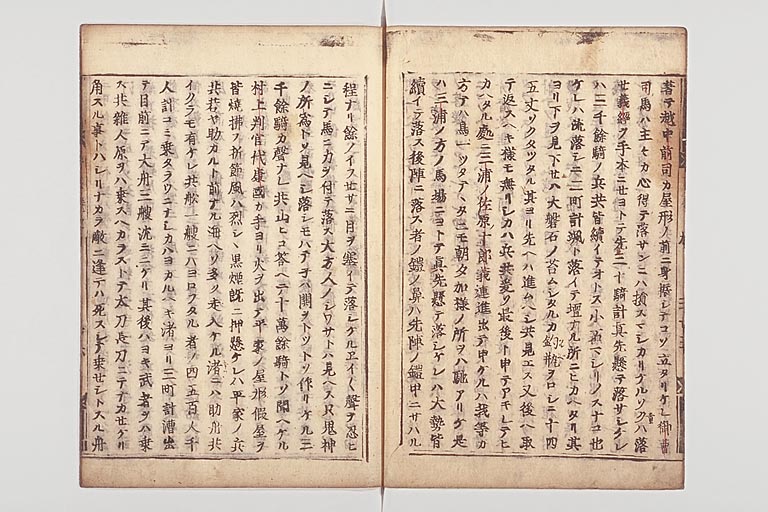 著テ越中前司カ屋形ノ前ニ身振シテコソ立タリケレ御曹
司馬ハ主々カ心得テ落サンニハ損スマシカリケルソクハ落
セ義經ヲ手本ニセヨトテ先三十騎計真先懸テ落サレケレ
ハ三千餘騎ノ兵共皆續イテオトス小石マシリノスナコ也
ケレハ流落シニ二町計颯ト落イテ壇ナル所ニヒカヘタリ其
ヨリ下ヲ見下セハ大磐石ノ苔ムシタルカ釣瓶ヲロシニ十四
五丈ソクタツタル其ヨリ先ヘハ進ムヘシ共見エス又後ヘ取
テ返スヘキ様モ無リシカハ兵共爰ソ最後ト申テアキレテヒ
カヘタル處ニ三浦ノ佐原十郎義連進出テ申ケルハ我等カ
方テハ鳥一ツタテヽタニモ朝夕加様ノ所ヲハ馳アリケ是
ハ三浦ノ方ノ馬場ニヨトテ真先懸テ落シケレハ大勢皆
續イテ落ス後陣ニ落ス者ノ鐙ノ鼻ハ先陣ノ鎧甲ニサハル
程ナリ餘ノイフセサニ目ヲ塞イテ落シケルヱイ〳〵聲ヲ忍ヒ
ニシテ馬ニ力ヲ付テ落ス大方人ノシワサトハ見ヘス只鬼神
ノ所為トソ見ヘシ落シモハテヌハ鬨ヲトツトソ作リケル三
千餘騎カ聲ナレ共山ヒコ答ヘテ十萬餘騎トソ聞ヘケル
村上判官代康國カ手ヨリ火ヲ出シ平家ノ屋形假屋ヲ
皆燒拂フ折節風ハ烈シヽ黒煙既ニ押懸ケレハ平家ノ兵
共若ヤ助カルト前ナル海ヘソ多ク走入ケル渚ニハ助舟共
イクラモ有ケレ共舩一艘ニハヨロフタル者ノ四五百人千
人計コミ乗タラウニナシカハヨカルヘキ渚ヨリ三町計漕出
テ目前ニテ大舟三艘沈ミニケリ其後ハヨキ武者ヲハ乗
ス共雜人原ヲハ乗スヘカラストテ太刀長刀ニテナカセケリ
角スル事トハシリナカラ敵ニ逢テハ死スシテ乗セシトスル舟